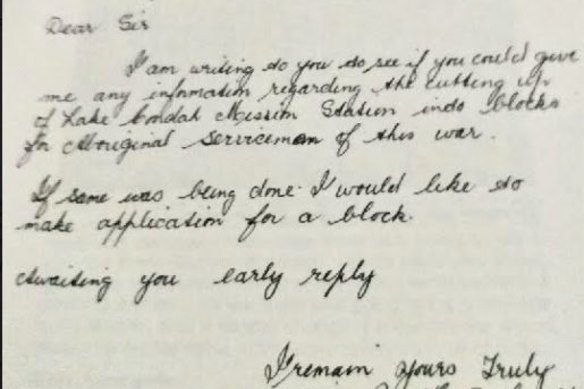 Dear Sir
I am writing to you to see if you could give
me any information regarding the cutting up
of Lake Condah Mission Station into blocks
for Aboriginal Serviceman of this war.
If same was being done I would like to
make application for a block.
Awaiting you early reply
I remain Yours Truly